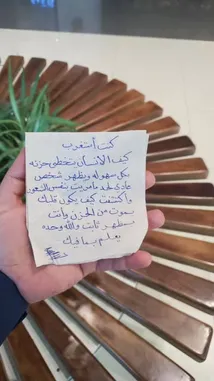 كنت أستغرب
كيف الانسان يتخطى حزنه
بكل سهوله ويظهر شخص
عادي لحد ما مريت بنفس الشعور
واكتشفت كيف يكون قلبك
يموت من الحزن وانت
بمظهر ثابت والله وحده
يعلم بما فيك